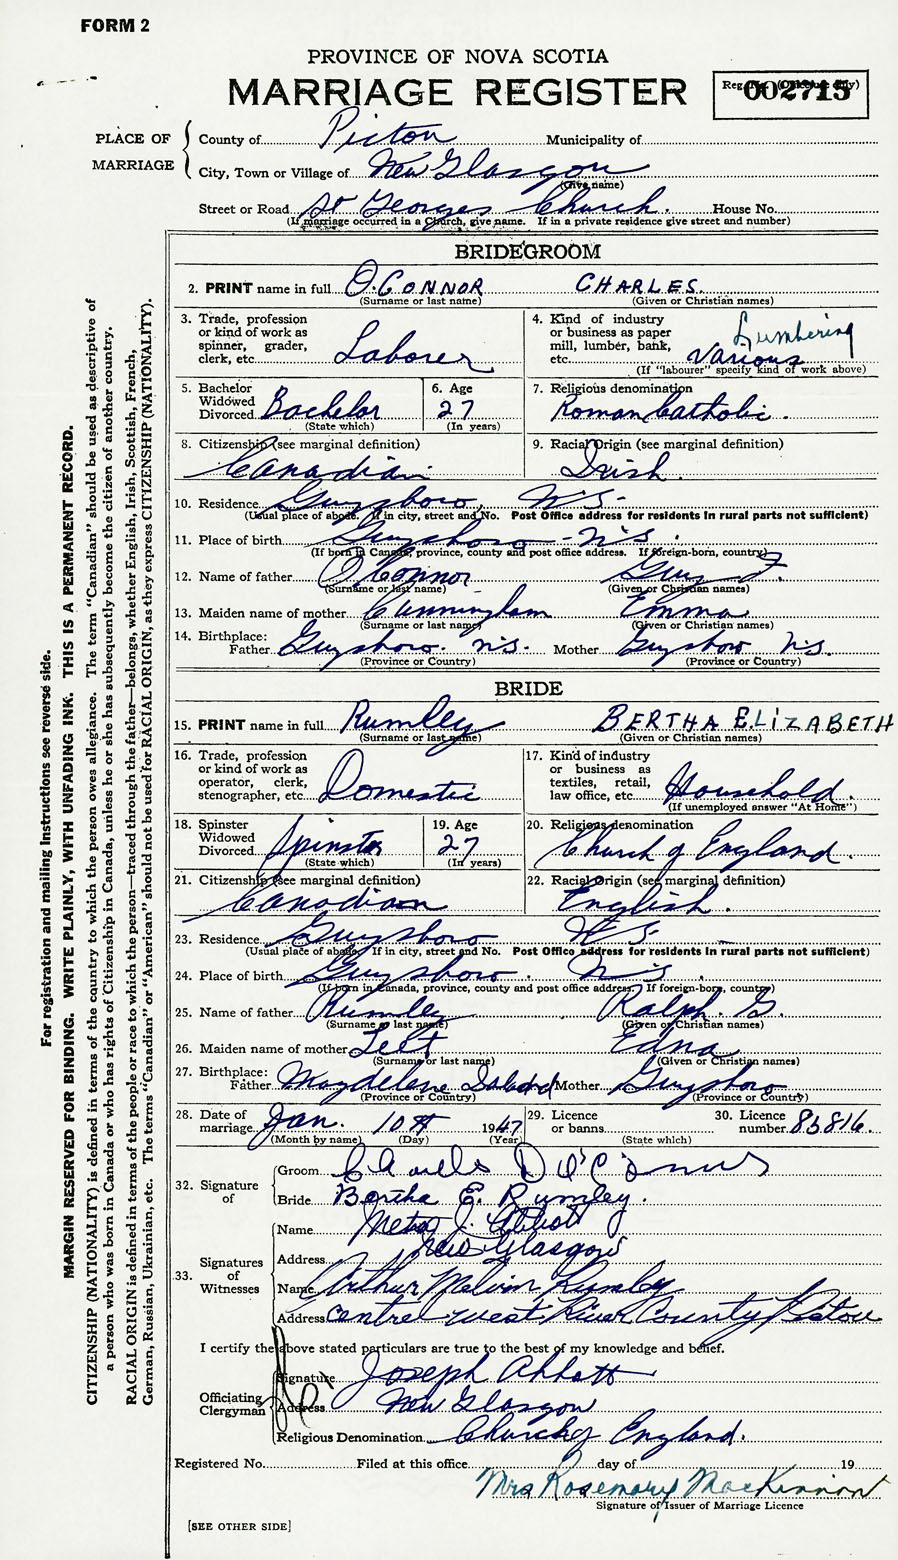 FORM 2
PROVINCE OF NOVA SCOTIA
MARRIAGE REGISTER
002715
PLACE OF MARRIAGE
County of Pictou Municipality of
City, Town or Village of New Glasgow
(Give name)
Street or Road St Georges Church. House No.
(If marriage occurred in a Church, give name. If in a private residence give street and number)
BRIDEGROOM
2. PRINT name in full O'CONNOR CHARLES.
(Surname or last name) (Given or Christian names)
3. Trade, profession or kind of work as spinner, grader, clerk, etc. Laborer
4. Kind of industry or business as paper mill, lumber, bank, etc. Various Lumbering
(If "labourer" specify kind of work above)
5. Bachelor Widowed Divorced Bachelor
(State which)
6. Age 27
(In years)
7. Religious denomination
Roman Catholic.
8. Citizenship (see marginal definition)
Canadian
9. Racial Origin (see marginal definition)
Irish.
10. Residence Guysboro, N.S.
(Usual place of abode. If in city, street and No. Post Office address for residents in rural parts not sufficient)
11. Place of birth Guysboro - N.S.
(If born in Canada, province, county and post office address. If foreign-born, country)
12. Name of father O'Connor Guy F.
(Surname or last name) (Given or Christian names)
13. Maiden name of mother Cunningham Emma
(Surname or last name) (Given or Christian names)
14. Birthplace:
Father Guysboro. N.S. Mother Guysboro N.S.
(Province or Country) (Province or Country)
BRIDE
15. PRINT name in full Rumley BERTHA ELIZABETH
(Surname or last name) (Given or Christian names)
16. Trade, profession or kind of work as operator, clerk, stenographer, etc. Domestic
17. Kind of industry or business as textiles, retail, law office, etc. Household.
(If unemployed answer "At Home")
18. Spinster Widowed Divorced Spinster
(State which)
19. Age 27
(In years)
20. Religious denomination
Church of England.
21. Citizenship (see marginal definition)
Canadian
22. Racial Origin (see marginal definition)
English.
23. Residence Guysboro N.S.
(Usual place of abode. If in city, street and No. Post Office address for residents in rural parts not sufficient)
24. Place of birth Guysboro. N.S.
(If born in Canada, province, county and post office address. If foreign-born, country)
25. Name of father Rumley Ralph. G.
(Surname or last name) (Given or Christian names)
26. Maiden name of mother Edna
(Surname or last name) (Given or Christian names)
27. Birthplace:
Father Magdelene Island Mother Guysboro
(Province or Country) (Province or Country)
28. Date of marriage Jan. 10th 1947
(Month by name) (Day) (Year)
29. Licence or banns
(State which)
30. Licence number 83816.
32. Signature of
Groom Charles O'Connor
Bride Bertha E. Rumley.
33. Signatures of Witnesses
Name J. Abbott
Address New Glasgow
Name Arthur Melvin Rumley
Address Central West River County Pictou
I certify the above stated particulars are true to the best of my knowledge and belief.
Officiating Clergyman
Signature Joseph Abbott
Address New Glasgow
Religious Denomination Church of England.
Registered No. Filed at this office day of 19
Mrs Rosemary MacKinnon
Signature of Issuer of Marriage Licence
[SEE OTHER SIDE]
For registration and mailing instructions see reverse side.
MARGIN RESERVED FOR BINDING. WRITE PLAINLY, WITH UNFADING INK. THIS IS A PERMANENT RECORD.
CITIZENSHIP (NATIONALITY) is defined in terms of the country to which the person owes allegiance. The term "Canadian" should be used as descriptive of
a person who was born in Canada or who has rights of Citizenship in Canada, unless he or she has subsequently become the citizen of another country.
RACIAL ORIGIN is defined in terms of the people or race to which the person—traced through the father—belongs, whether English, Irish, Scottish, French,
German, Russian, Ukrainian, etc. The terms "Canadian" or "American" should not be used for RACIAL ORIGIN, as they express CITIZENSHIP (NATIONALITY).